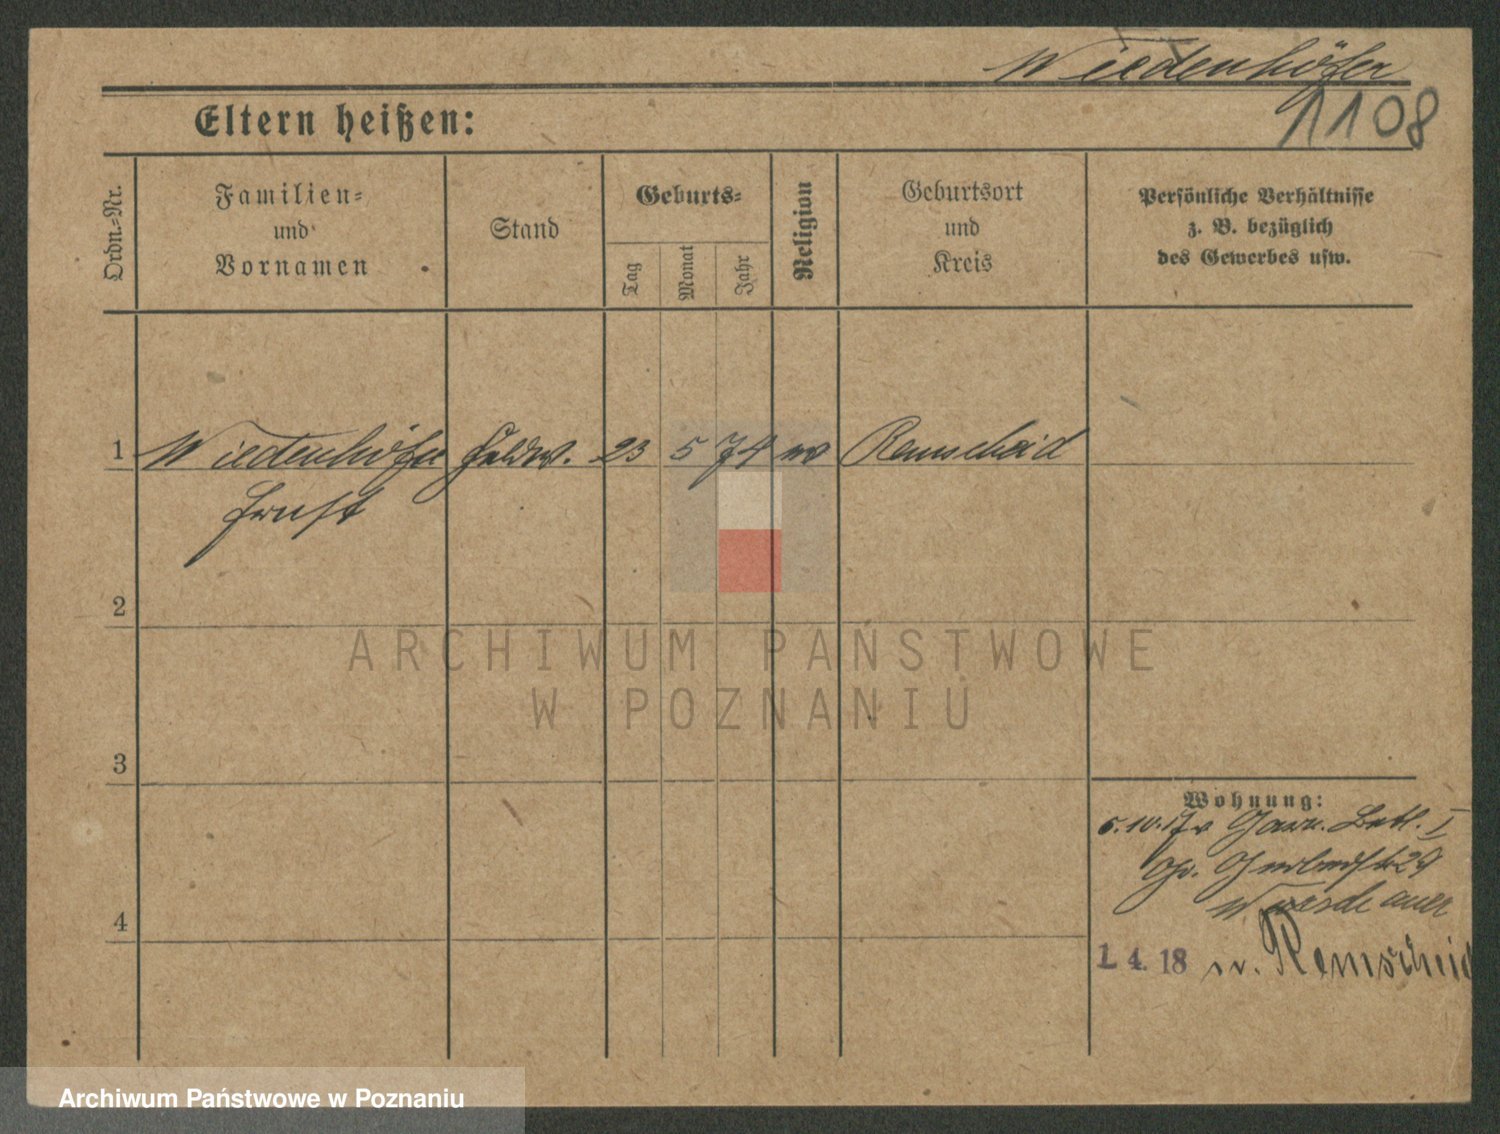 Wiedenhöfer
1108
Eltern heißen:
Ordn.-Nr.
Familien-
und
Vornamen
Stand
Geburts-
Tag
Monat
Jahr
Religion
Geburtsort
und
Kreis
Persönliche Verhältnisse
z. B. bezüglich
des Gewerbes usw.
1 Wiedenhöfer Feldw. 23 5 74 ev Remscheid
Ernst
2
3
4
ARCHIWUM PAŃSTWOWE
W POZNANIU
Wohnung:
5.10.17 v Garn. Batl. I
29
1. 4. 18 n. Remscheid
Archiwum Państwowe w Poznaniu